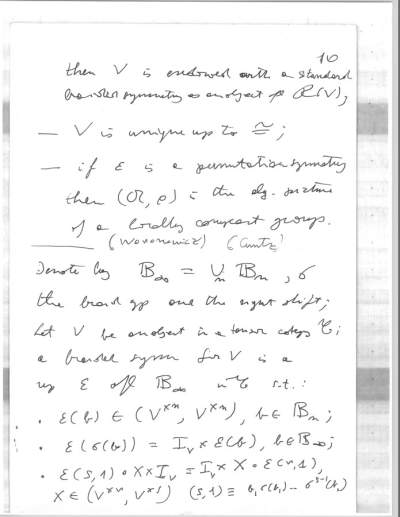 10
then V is endowed with a standard
braided symmetry as an object of R(V),
— V is unique up to ≅ ;
— if ε is a permutation symmetry
then (𝒪, ρ) is the alg. structure
of a locally compact group.
(Woronowicz) (Cuntz)
Denote by 𝔹∞ = ∪n 𝔹n , σ
the braid gp and the right shift;
let V be an object in a tensor category 𝒞;
a braided symm for V is a
rep ε of 𝔹∞ in 𝒞 s.t.:
· ε(b) ∈ (V×n, V×n), b ∈ 𝔹n ;
· ε(σ(b)) = I_V × ε(b), b ∈ 𝔹∞ ;
· ε(s,1) ∘ X × I_V = I_V × X ∘ ε(r,1),
X ∈ (V×r, V×s) (s,1) ≡ b1 σ(b1) ... σ^{s-1}(b1)